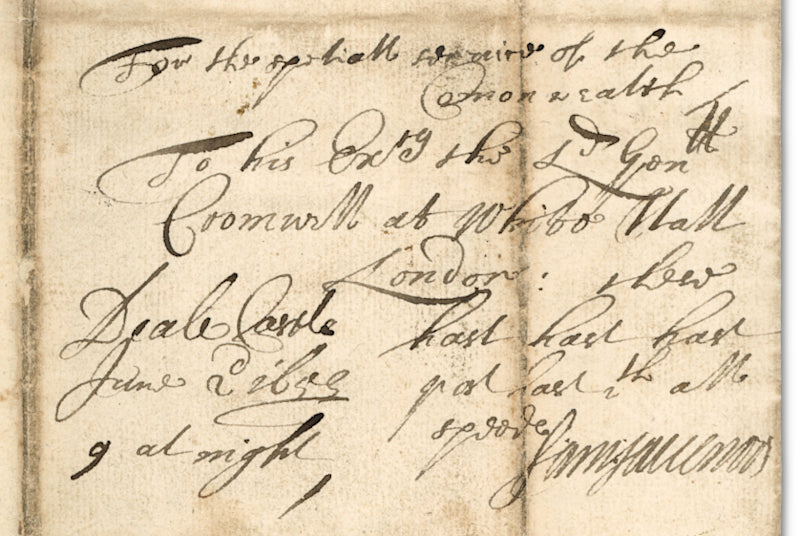 For the spetiall service of the
Comonwealth
To his Exty the Ld Genll
Cromwell at White Hall
London: these
Deale Castle hast hast hast
June 2d 1653 post hast wth all
speede
9 at night